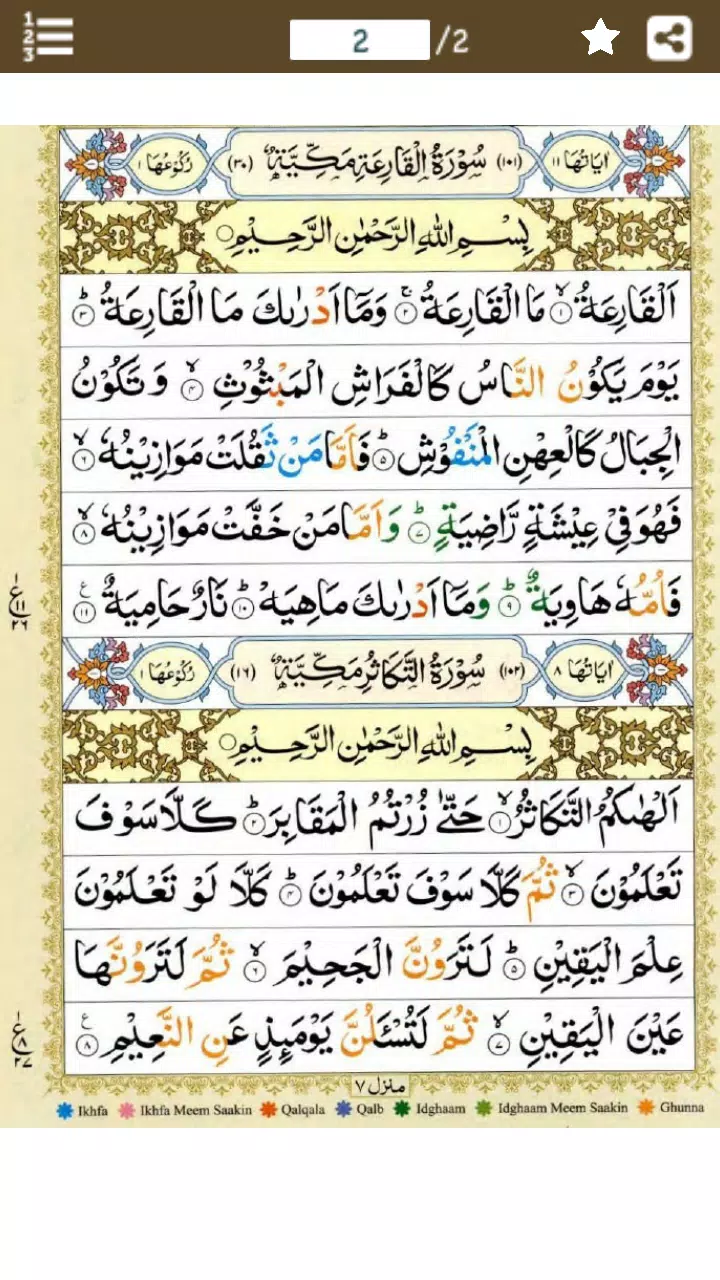 1 2 3
2 /2
اٰيَاتُهَا ١١ (١٠١) سُوْرَةُ الْقَارِعَةِ مَكِّيَّةٌ (٣٠) رُكُوْعُهَا ١
بِسْمِ اللّٰهِ الرَّحْمٰنِ الرَّحِيْمِ
اَلْقَارِعَةُ ۙ﴿١﴾ مَا الْقَارِعَةُ ۚ﴿٢﴾ وَمَاۤ اَدْرٰىكَ مَا الْقَارِعَةُ ؕ﴿٣﴾
يَوْمَ يَكُوْنُ النَّاسُ كَالْفَرَاشِ الْمَبْثُوْثِ ۙ﴿٤﴾ وَتَكُوْنُ
الْجِبَالُ كَالْعِهْنِ الْمَنْفُوْشِ ؕ﴿٥﴾ فَاَمَّا مَنْ ثَقُلَتْ مَوَازِيْنُهٗ ۙ﴿٦﴾
فَهُوَ فِيْ عِيْشَةٍ رَّاضِيَةٍ ؕ﴿٧﴾ وَاَمَّا مَنْ خَفَّتْ مَوَازِيْنُهٗ ۙ﴿٨﴾
فَاُمُّهٗ هَاوِيَةٌ ؕ﴿٩﴾ وَمَاۤ اَدْرٰىكَ مَاهِيَهْ ؕ﴿١٠﴾ نَارٌ حَامِيَةٌ ﴿١١﴾
ع ١١ ٢٦
اٰيَاتُهَا ٨ (١٠٢) سُوْرَةُ التَّكَاثُرِ مَكِّيَّةٌ (١٦) رُكُوْعُهَا ١
بِسْمِ اللّٰهِ الرَّحْمٰنِ الرَّحِيْمِ
اَلْهٰىكُمُ التَّكَاثُرُ ۙ﴿١﴾ حَتّٰى زُرْتُمُ الْمَقَابِرَ ؕ﴿٢﴾ كَلَّا سَوْفَ
تَعْلَمُوْنَ ۙ﴿٣﴾ ثُمَّ كَلَّا سَوْفَ تَعْلَمُوْنَ ؕ﴿٤﴾ كَلَّا لَوْ تَعْلَمُوْنَ
عِلْمَ الْيَقِيْنِ ؕ﴿٥﴾ لَتَرَوُنَّ الْجَحِيْمَ ۙ﴿٦﴾ ثُمَّ لَتَرَوُنَّهَا
عَيْنَ الْيَقِيْنِ ۙ﴿٧﴾ ثُمَّ لَتُسْـَٔلُنَّ يَوْمَىِٕذٍ عَنِ النَّعِيْمِ ﴿٨﴾
ع ٨ ٢٧
منزل ٧
Ikhfa Ikhfa Meem Saakin Qalqala Qalb Idghaam Idghaam Meem Saakin Ghunna